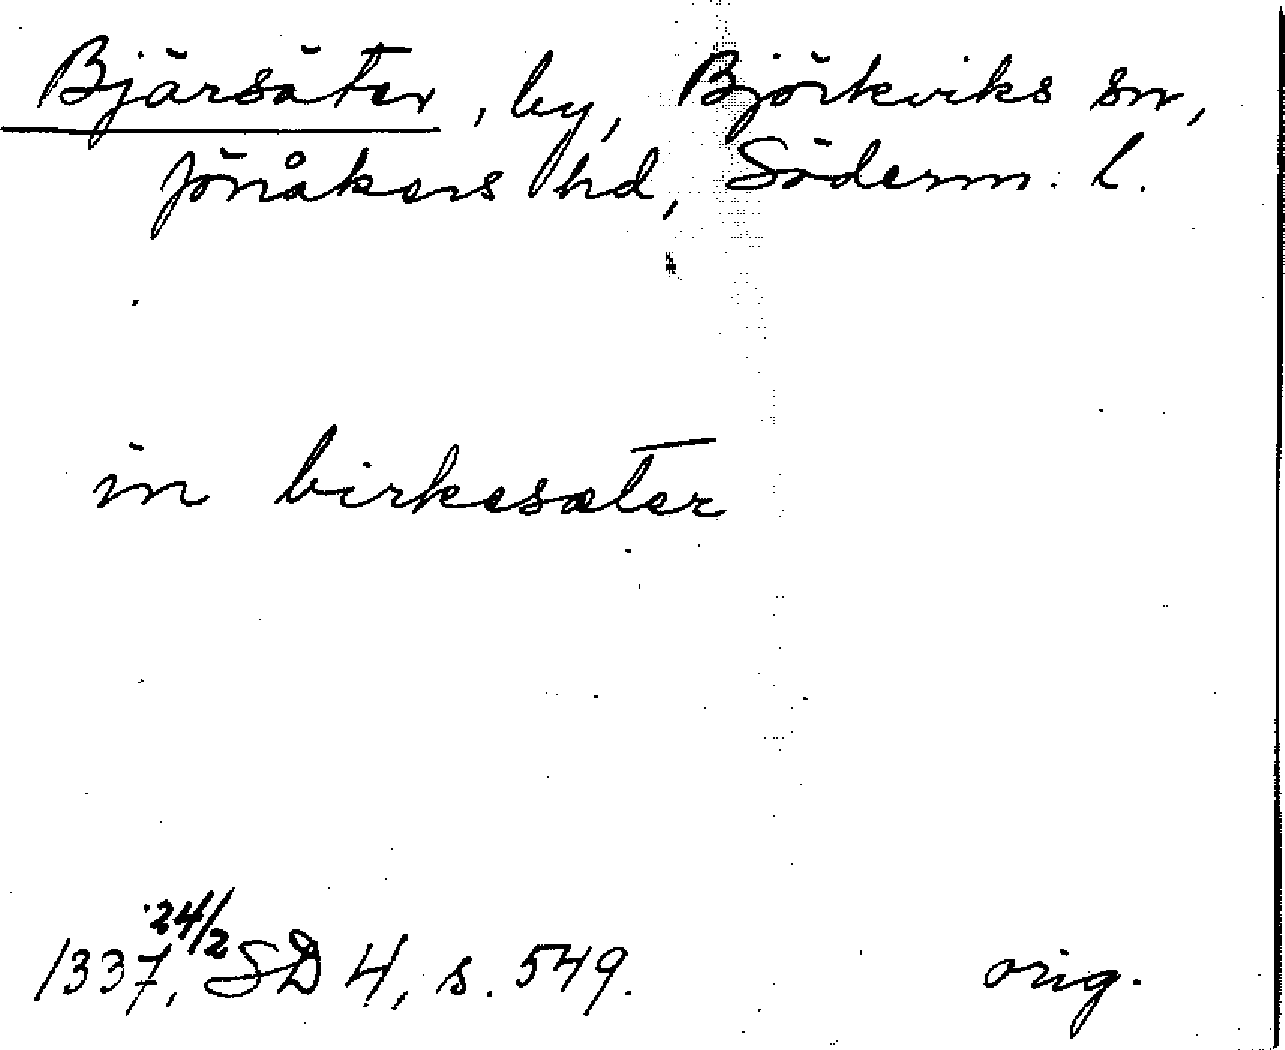 Bjärsäter, by, Björkviks sn,
Jönåkers hd, Söderm. l.
in birkesæter
1337 24/2, SD 4, s. 549. orig.